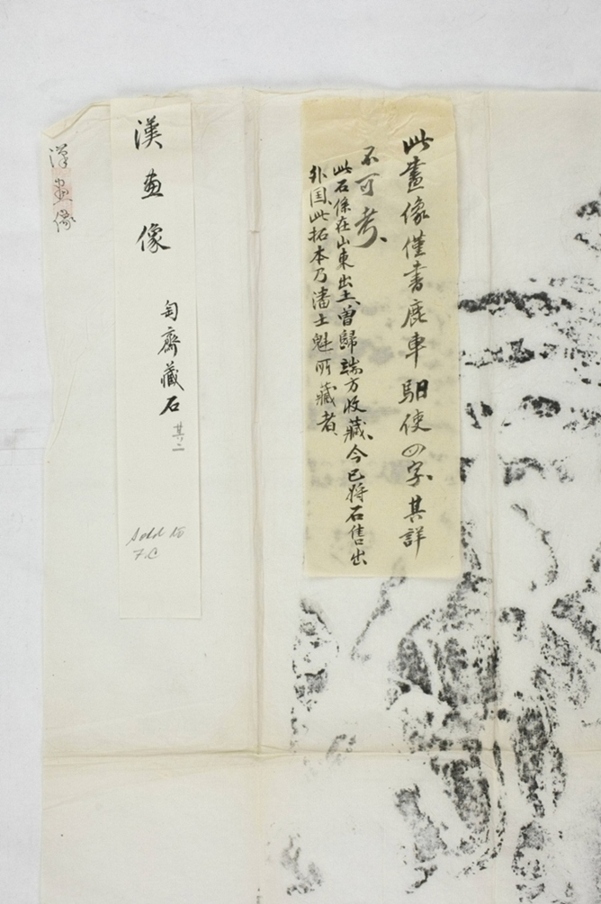 此畫像僅書鹿車馹使四字其詳
不可考、
此石係在山東出土、曾歸端方收藏、今已將石售出
外国、此拓本乃潘士魁所藏者、
漢畫像
匋齋藏石 其二
Sold to
F.C
漢畫像